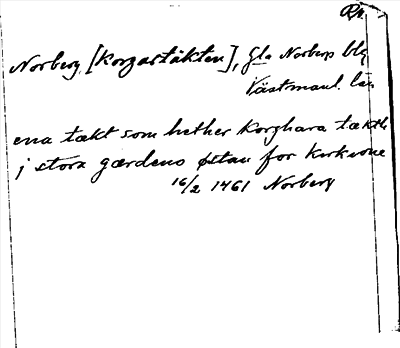 Ra.
Norberg, [Korgastäkten], Gla Norbergs blg
Västmanl. län
ena tækt som hether Korghara tækth
j stora gærdeno østan for kirkione
16/2 1461 Norberg